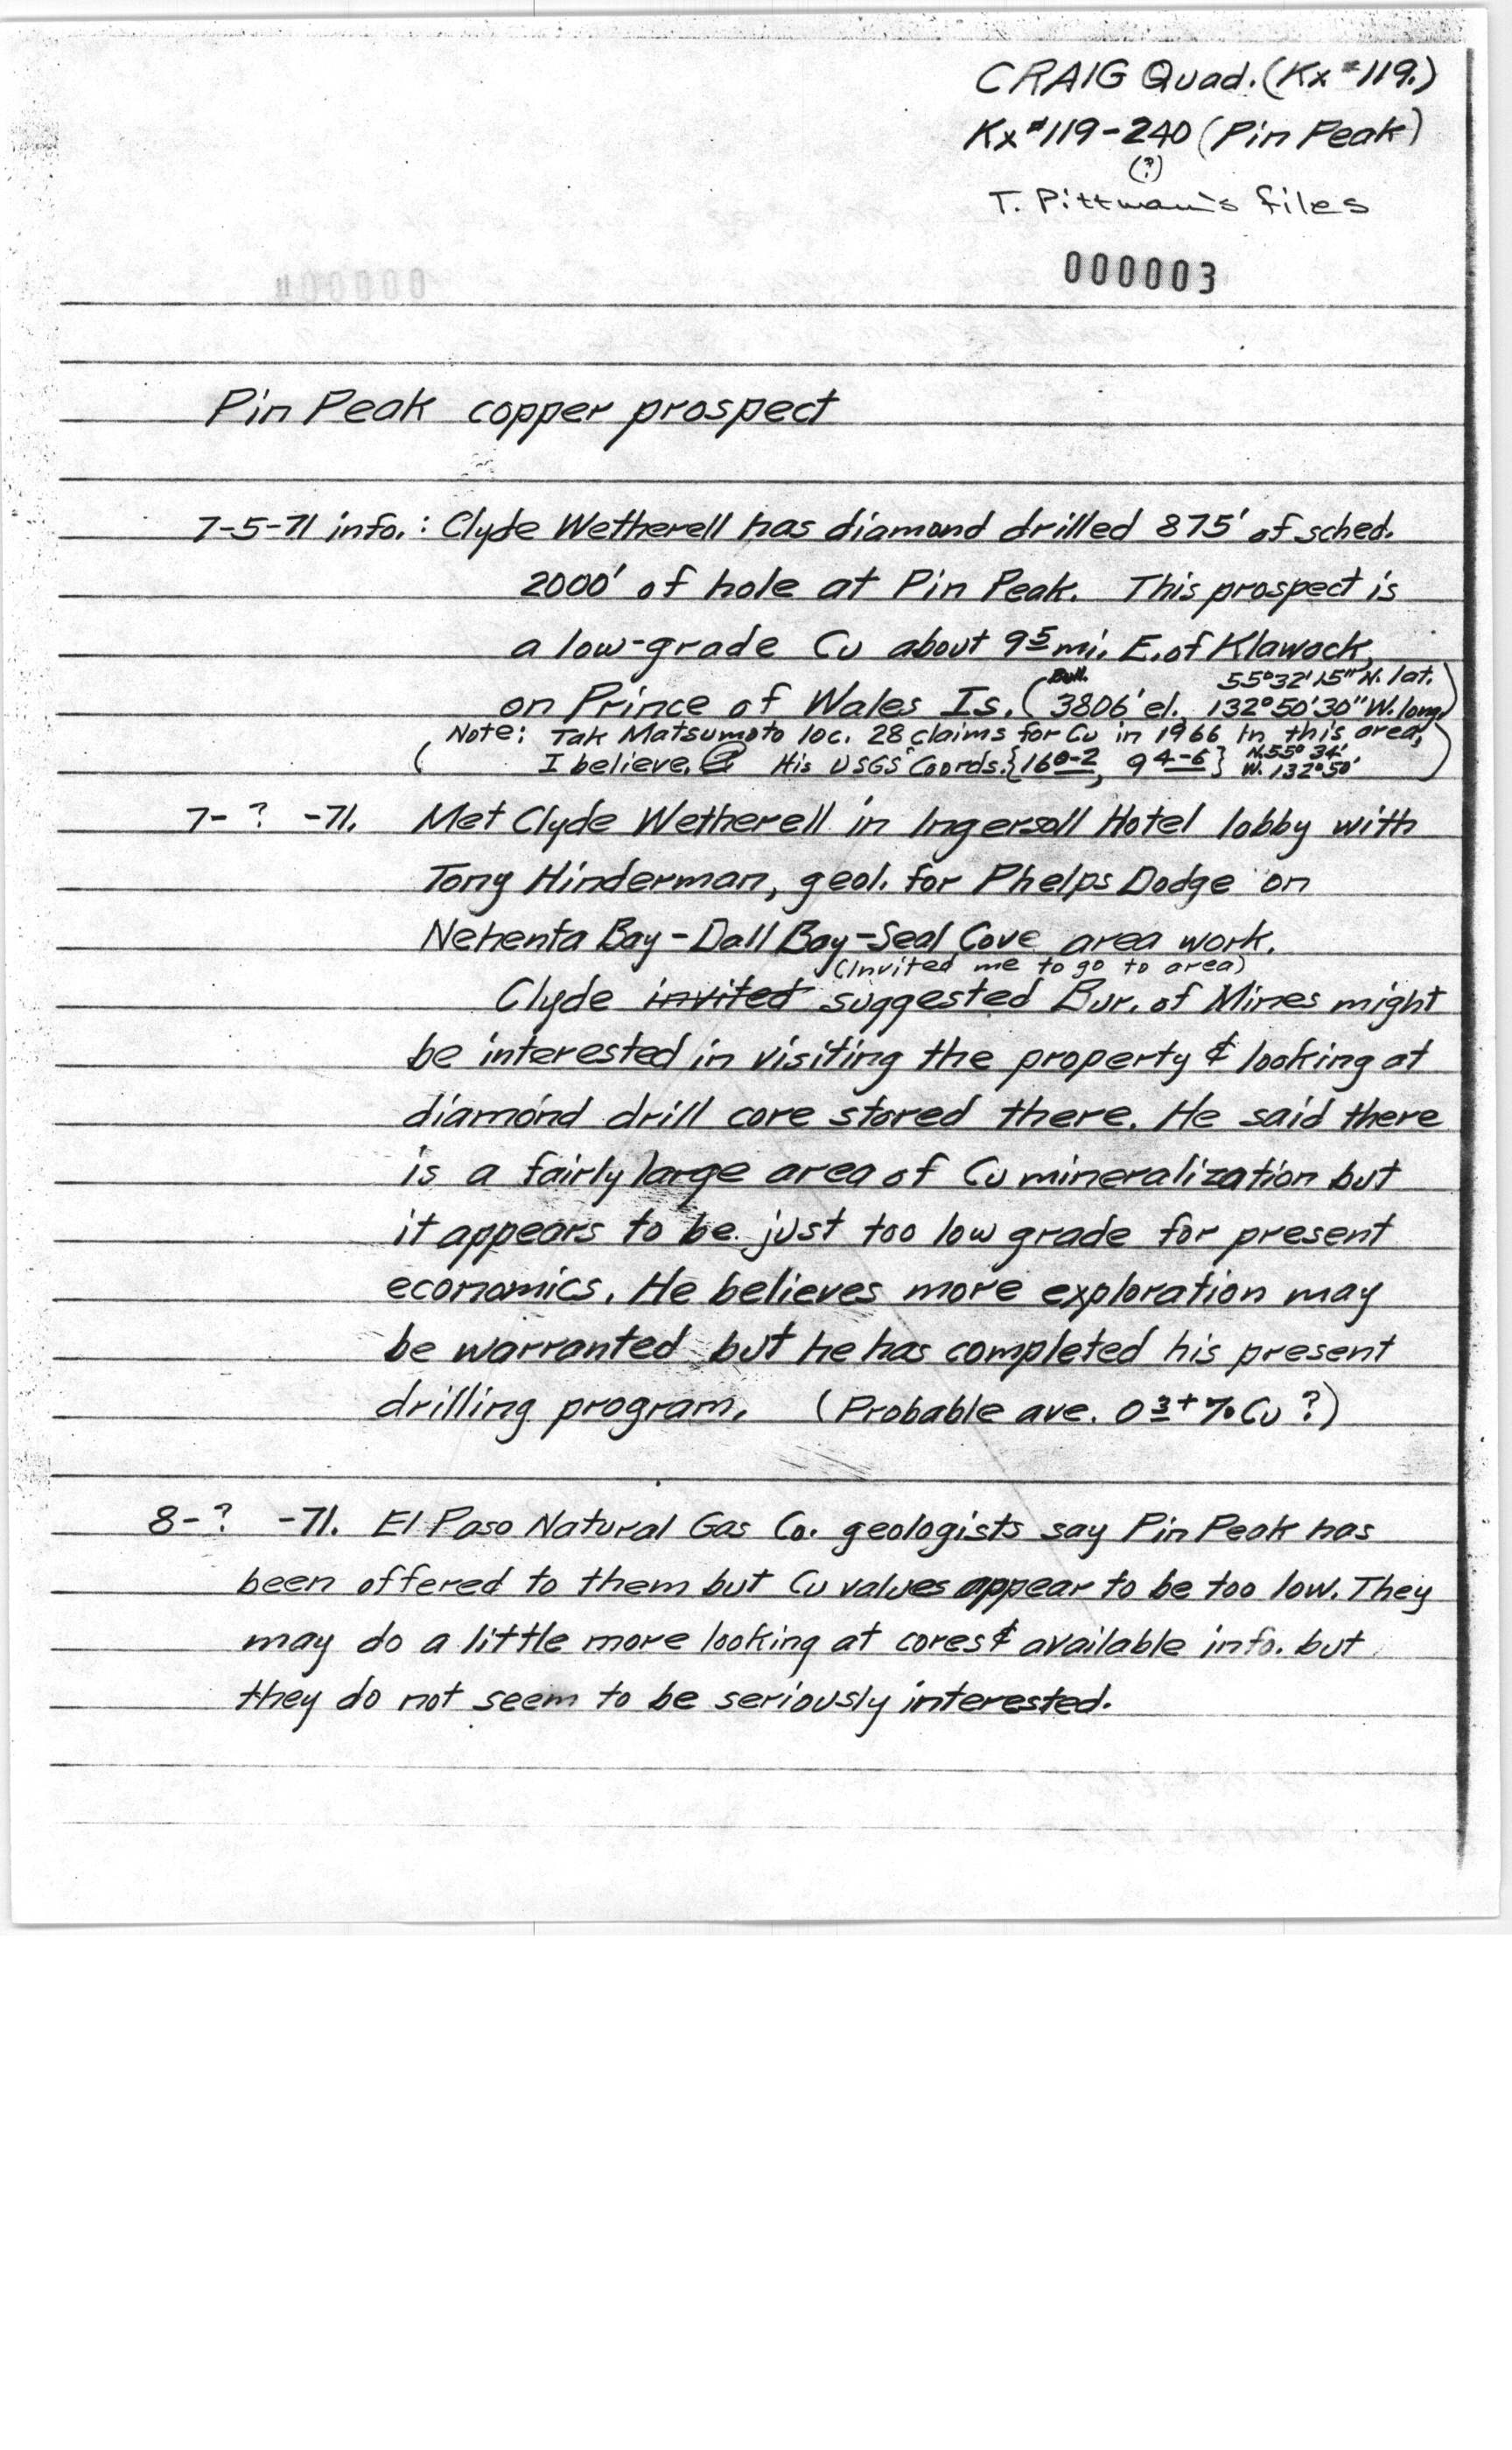 CRAIG Quad. (Kx #119.)
Kx #119-240 (Pin Peak)
(?)
T. Pittman's files
000003
Pin Peak copper prospect
7-5-71 info. : Clyde Wetherell has diamond drilled 875' of sched.
2000' of hole at Pin Peak. This prospect is
a low-grade Cu about 9 5 mi. E. of Klawock,
55°32'15" N. lat.
on Prince of Wales Is. (3806' el. 132°50'30" W. long.)
(Note: Tak Matsumoto loc. 28 claims for Cu in 1966 in this area,
I believe. His USGS Coords. {16 0-2, 9 4-6} N. 55° 34'
W. 132°50')
7- ? -71. Met Clyde Wetherell in Ingersoll Hotel lobby with
Tony Hinderman, geol. for Phelps Dodge on
Nehenta Bay - Dall Bay - Seal Cove area work.
(Invited me to go to area)
Clyde invited suggested Bur. of Mines might
be interested in visiting the property & looking at
diamond drill core stored there. He said there
is a fairly large area of Cu mineralization but
it appears to be just too low grade for present
economics. He believes more exploration may
be warranted but he has completed his present
drilling program. (Probable ave. 0 3+ % Cu ?)
8- ? -71. El Paso Natural Gas Co. geologists say Pin Peak has
been offered to them but Cu values appear to be too low. They
may do a little more looking at cores & available info. but
they do not seem to be seriously interested.